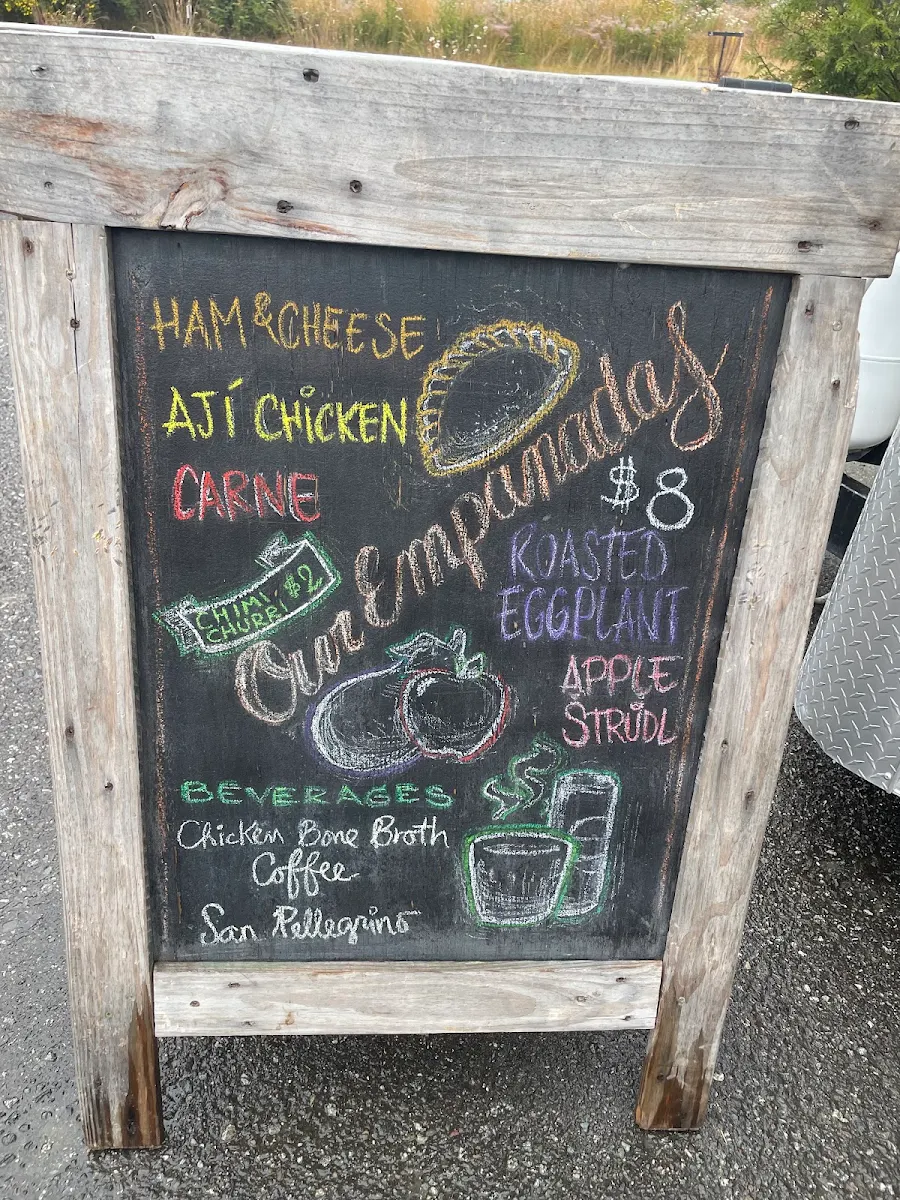 HAM & CHEESE
AJÍ CHICKEN
CARNE
CHIMI
CHURRI
$2
Our Empanadas
$8
ROASTED
EGGPLANT
APPLE
STRÜDL
BEVERAGES
Chicken Bone Broth
Coffee
San Pellegrino